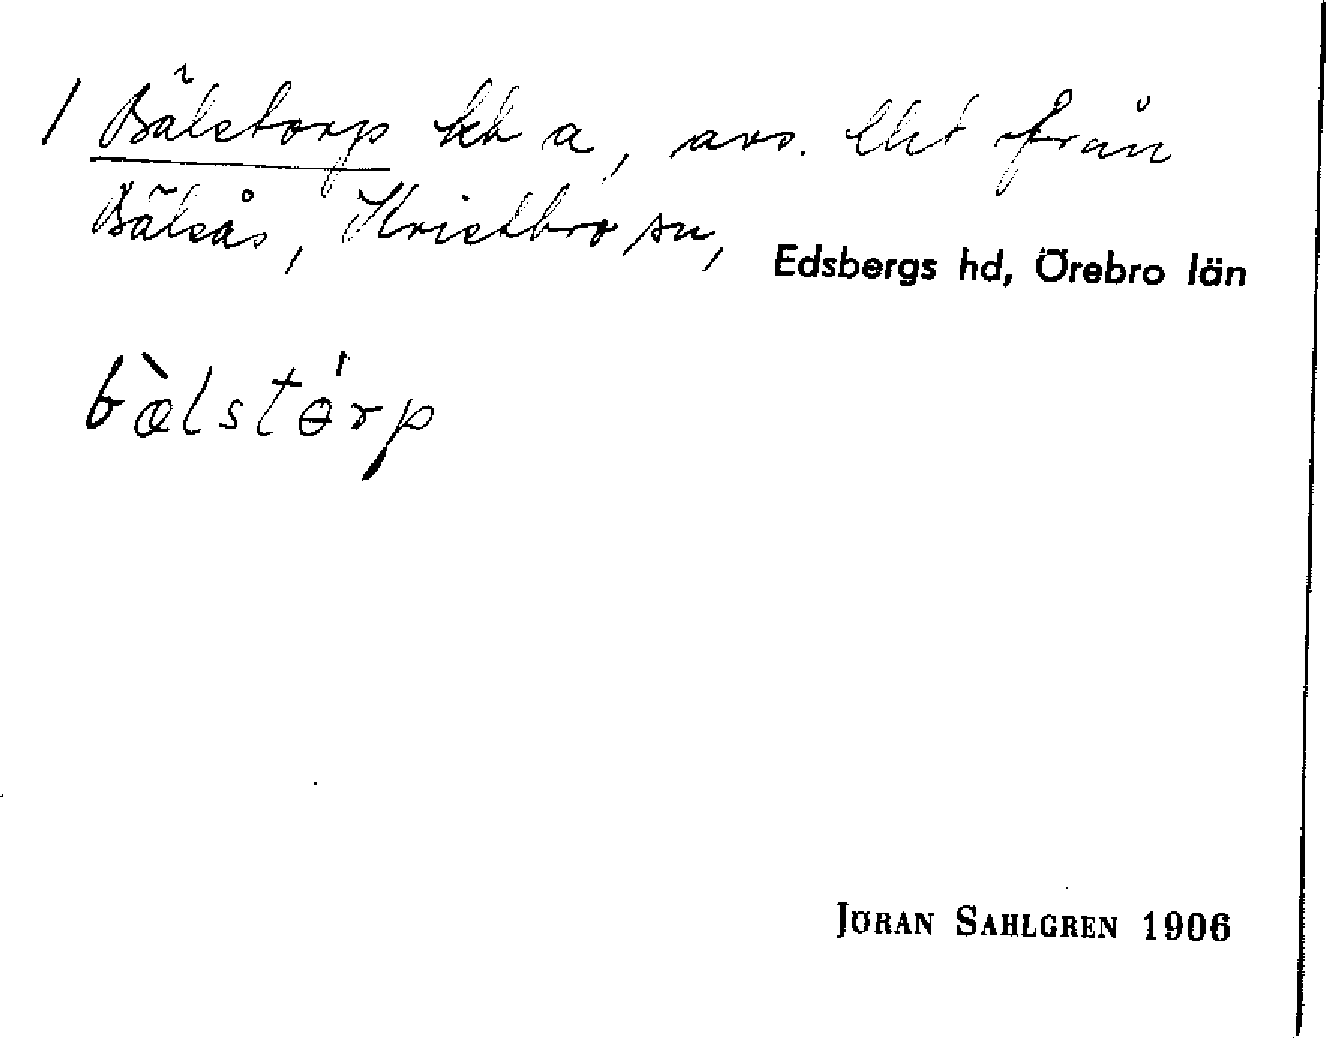 / Bälstorp a, avs. från
Bälsås, Kvistbro sn, Edsbergs hd, Örebro län
bæ̀lstɵ́rp
JÖRAN SAHLGREN 1906